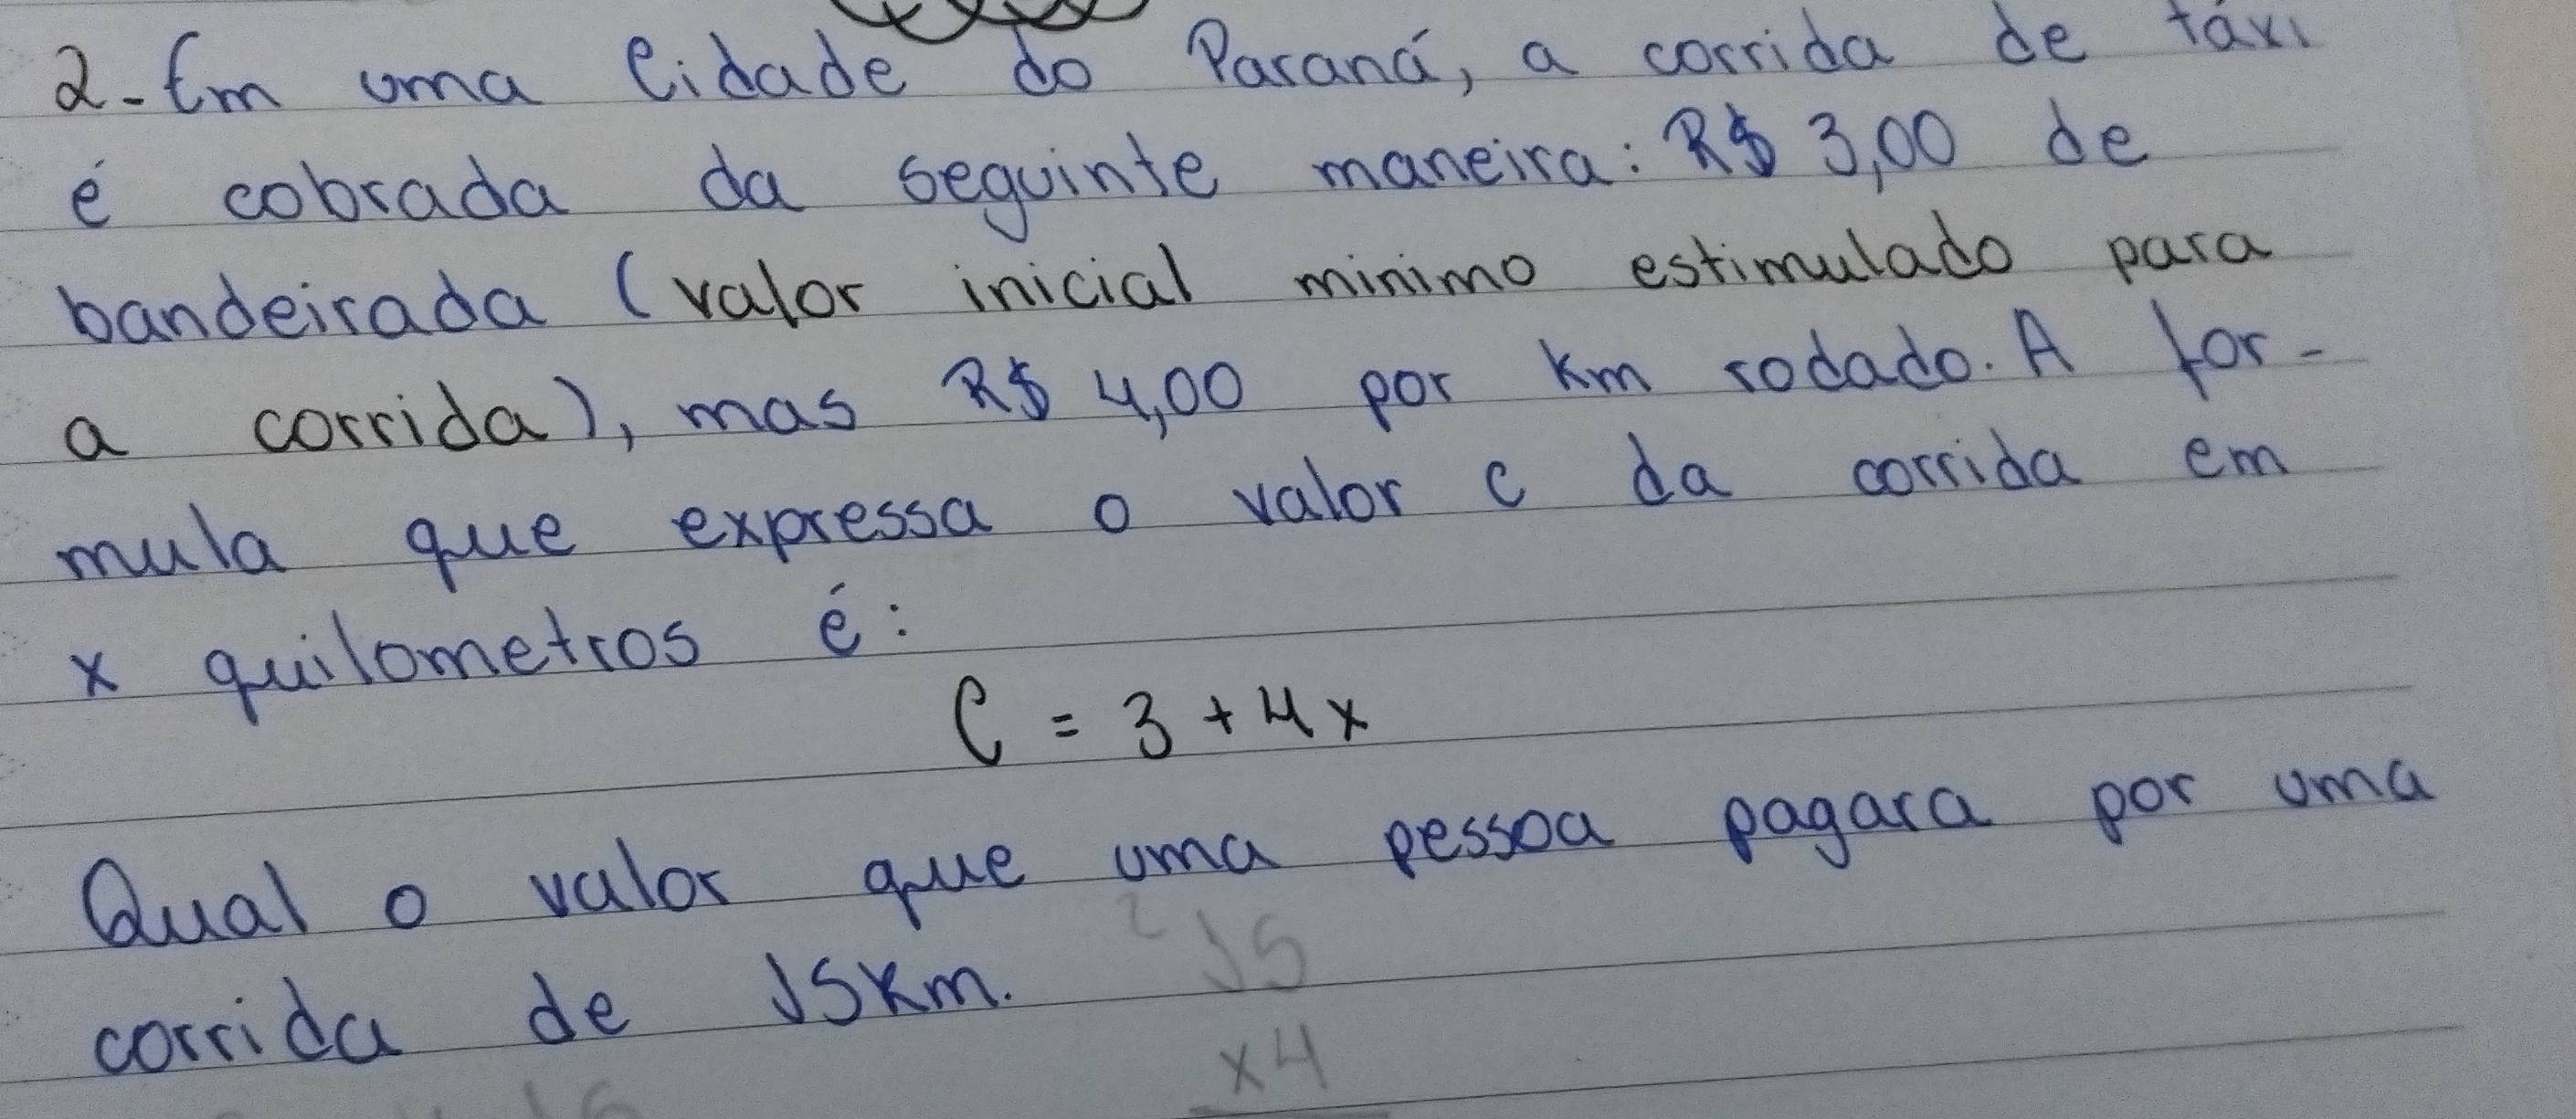 2-Em uma Cidade do Paraná, a corrida de táxi
é cobrada da seguinte maneira: R$ 3,00 de
bandeirada (valor inicial minimo estimulado para
a corrida), mas R$ 4,00 por Km rodado. A for-
mula que expressa o valor c da corrida em
x quilometros é:
C = 3 + 4x
Qual o valor que uma pessoa pagara por uma
corrida de 15Km.
2 15
x4